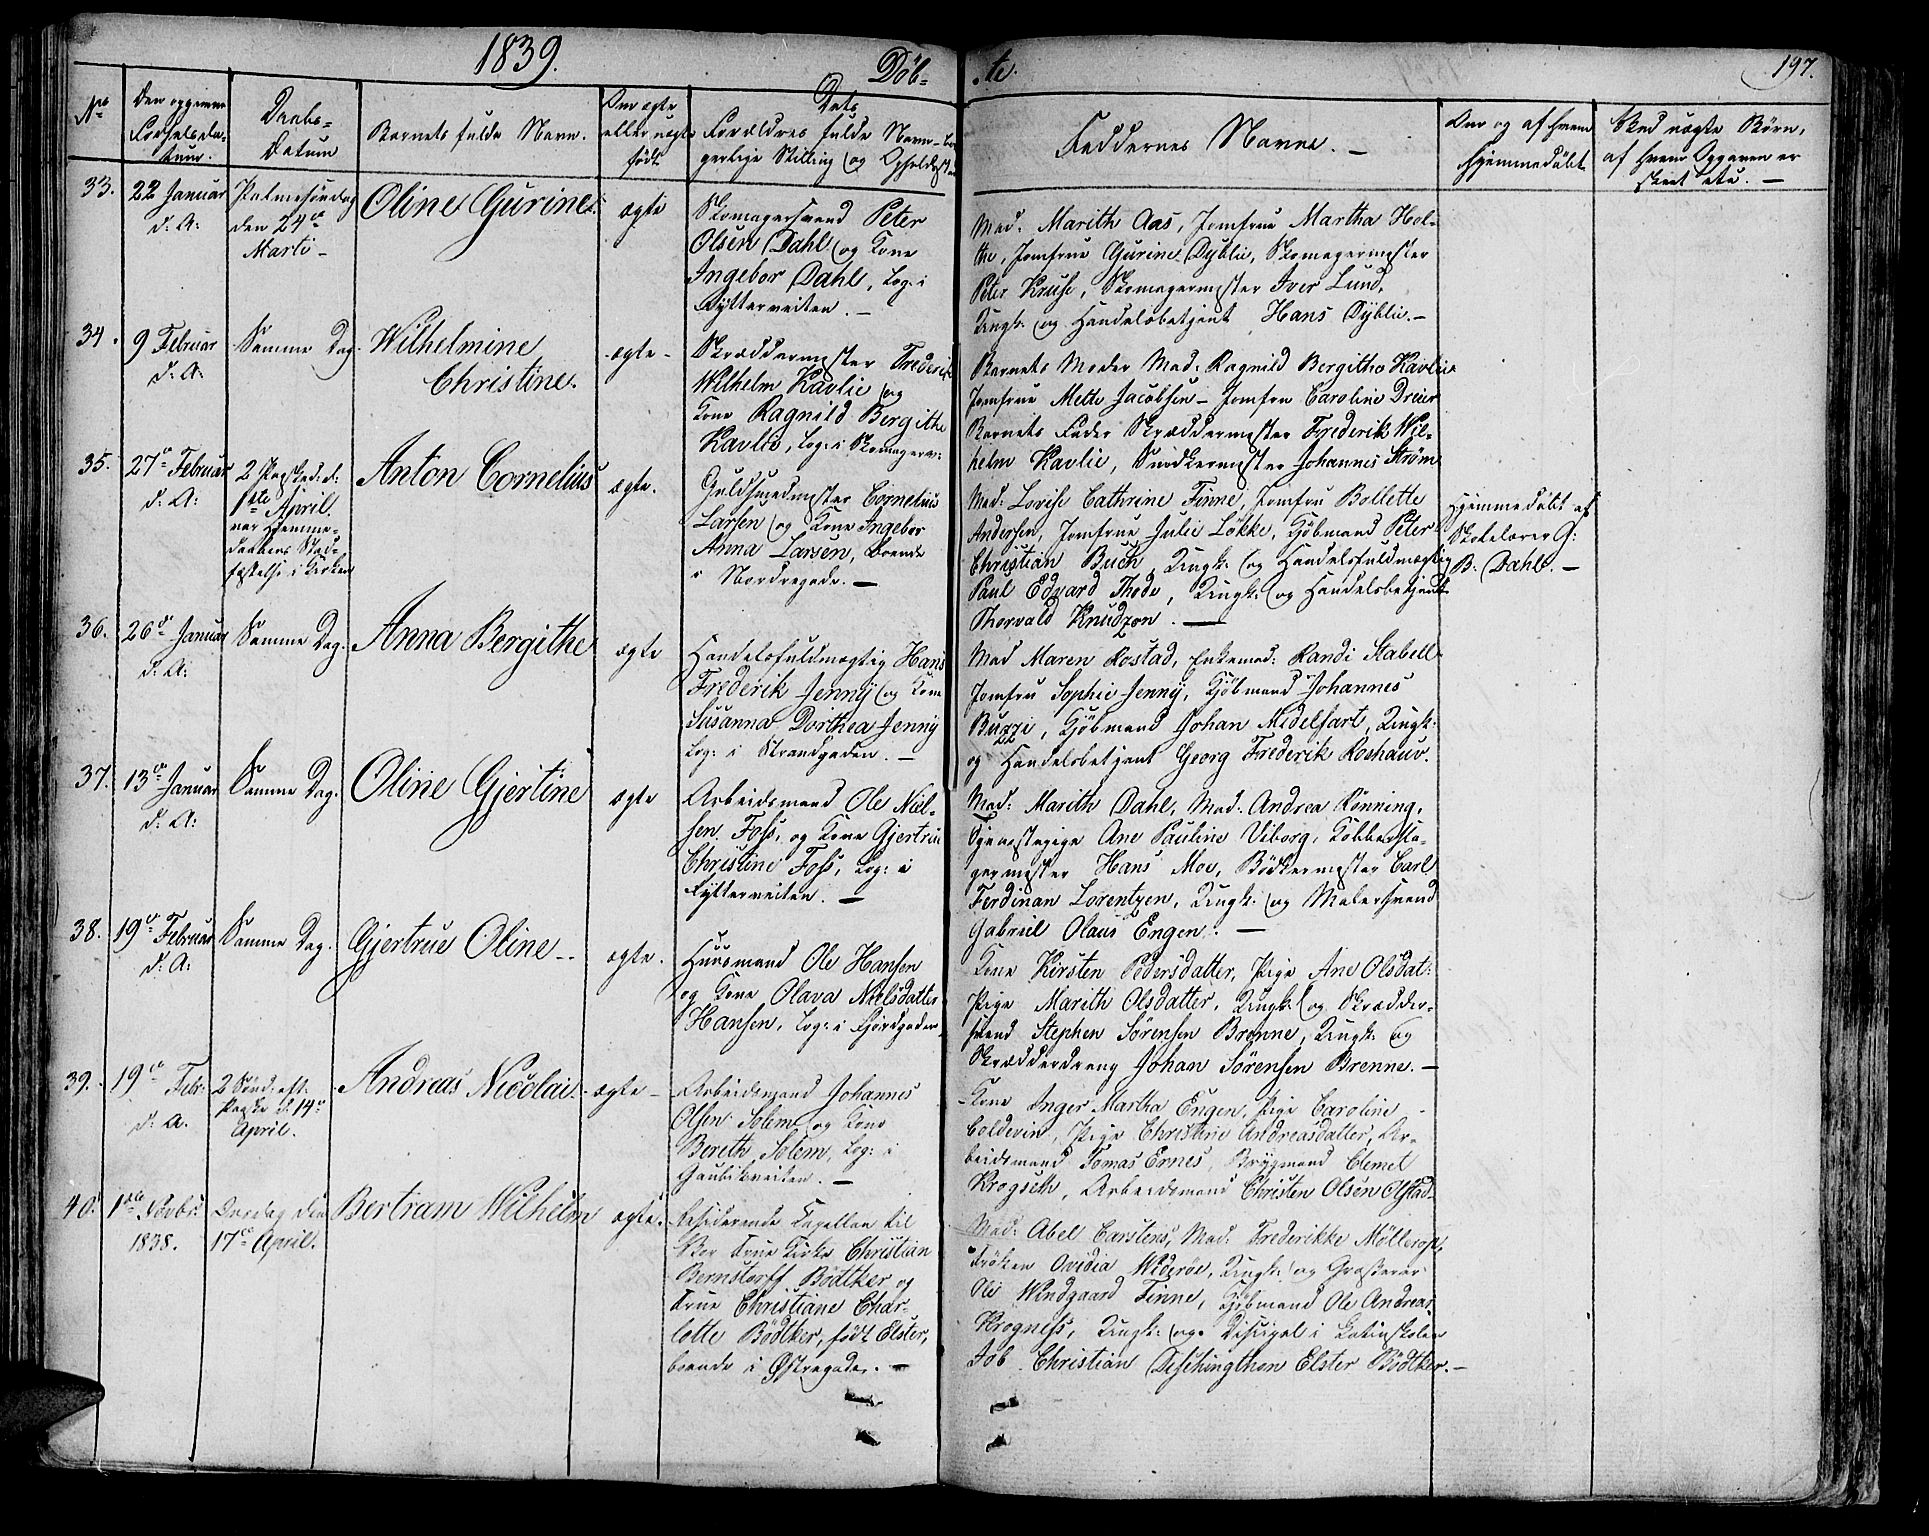 1839.
Døb-
te.
197.
No
Den opgivne Fødselsdatum.
Daabs-Datum
Barnets fulde Navn.
Om ægte eller uægte født
Dets Forældres fulde Navn, borgerlige Stilling og Opholdssted
Faddernes Navne. —
Om og af hvem hjemmedøbt
Ved uægte Børn, af hvem Opgaven er skeet etc. —
33.
22 Januar
d: A:
Palmesøndag
den 24de
Marti -
Oline Gurine.
ægte
Skomagersvend Peter
Olsen Dahl og Kone
Ingebor Dahl, Log: i
Rytterveiten. —
Mad: Marith Aas, Jomfrue Martha Hol-
the, Jomfrue Gurine Dyblie, Skomagermester
Peter Kruse, Skomagermester Iver Lund,
Ungk: og Handelsbetjent Hans Dyblie. —
34.
9 Februar
d: A:
Samme Dag.
Wilhelmine
Christine.
ægte -
Skræddermester Frederik
Wilhelm Kavlie og
Kone Ragnild Bergithe
Kavlie, Log: i Skomagerv:
Barnets Moder Mad: Ragnild Bergitha Kavlie
Jomfrue Mette Jacobsen - Jomfru Caroline Dreier
Barnets Fader Skræddermester Frederik Wil-
helm Kavlie, Snedkermester Johannes Strøm
35.
27de Februar
d: A:
2 Paasked: d:
1ste April.
var Hjemme-
daabens Stad-
fæstelse i Kirken
Anton Cornelius
ægte.
Guldsmedmester Cornelius
Larsen og Kone Ingebor
Anna Larsen, boende
i Nordregade. —
Mad: Lovise Cathrine Finne, Jomfru Bollette
Andersen, Jomfrue Julie Løkke, Kjøbmand Peter
Christian Buch, Ungk: og Handelsfuldmægtig
Paul Edvard Thode, Ungk: og Handelsbetjent
Thorvald Knudzon. —
Hjemmedøbt af
Skolelærer G:
B. Dahl. —
36.
26de Januar
d: A:
Samme Dag.
Anna Bergithe
ægte
Handelsfuldmægtig Hans
Frederik Jenny og Kone
Susanna Dorthea Jenny
Log: i Strandgaden. —
Mad Maren Rostad, Enkemad: Randi Stabell
Jomfru Sophie Jenny, Kjøbmand Johannes
Buzzi, Kjøbmand Johan Midelfart, Ungk:
og Handelsbetjent Georg Frederik Roshauv.
37.
13de Januar
d: A:
Samme Dag.
Oline Gjertine
ægte
Arbeidsmand Ole Niel-
sen Foss, og Kone Gjertrue
Christine Foss, Log: i
Rytterveiten. —
Mad: Marith Dahl, Mad: Andrea Rønning,
Tjenestepige Ane Pauline Viborg, Kobbersla-
germester Hans Moe, Bødkermester Carl
Ferdinan Lorentzen, Ungk: og Malersvend
Gabriel Olaus Engen. —
38.
19de Februar
d: A:
Samme Dag.
Gjertrue Oline -
ægte.
Huusmand Ole Hansen
og Kone Olava Nielsdatter
Hansen, Log: i Fjordgaden
Kone Kirsten Pedersdatter, Pige Ane Olsdat:
Pige Marith Olsdatter, Ungk: og Skrædder-
svend Stephen Sørensen Brenne, Ungk: og
Skrædderdreng Johan Sørensen Brenne. —
39.
19de Febr:
d: A.
2 Sønd: eft.
Paaske d. 14de
April.
Andreas Nicolai.
ægte -
Arbeidsmand Johannes
Olsen Solem og Kone
Bereth Solem, Log: i
Gaubekveiten. —
Kone Inger Martha Engen, Pige Caroline
Coldevin, Pige Christine Andreasdatter, Ar-
beidsmand Tomas Ernes, Brygmand Clemet
Krogseth, Arbeidsmand Christen Olsen Ofstad
40.
1ste Novbr:
1838.
Onsdag den
17de April.
Bertram Wilhelm
ægte.
Residerende Capellan til
Vor Frue Kirke Christian
Bernstorff Bødtker og
Frue Christiane Char-
lotte Bødtker, født Elster,
boende i Østregade. —
Mad: Abel Carstens, Mad: Frederikke Møllerop,
Frøken Ovidia Widerøe, Ungk: og Grosserer
Ole Windgaard Finne, Kjøbmand Ole Andreas
Krogness, Ungk: og Discipel i Latinskolen
Job Christian Dischingthon Elster Bødtker. —